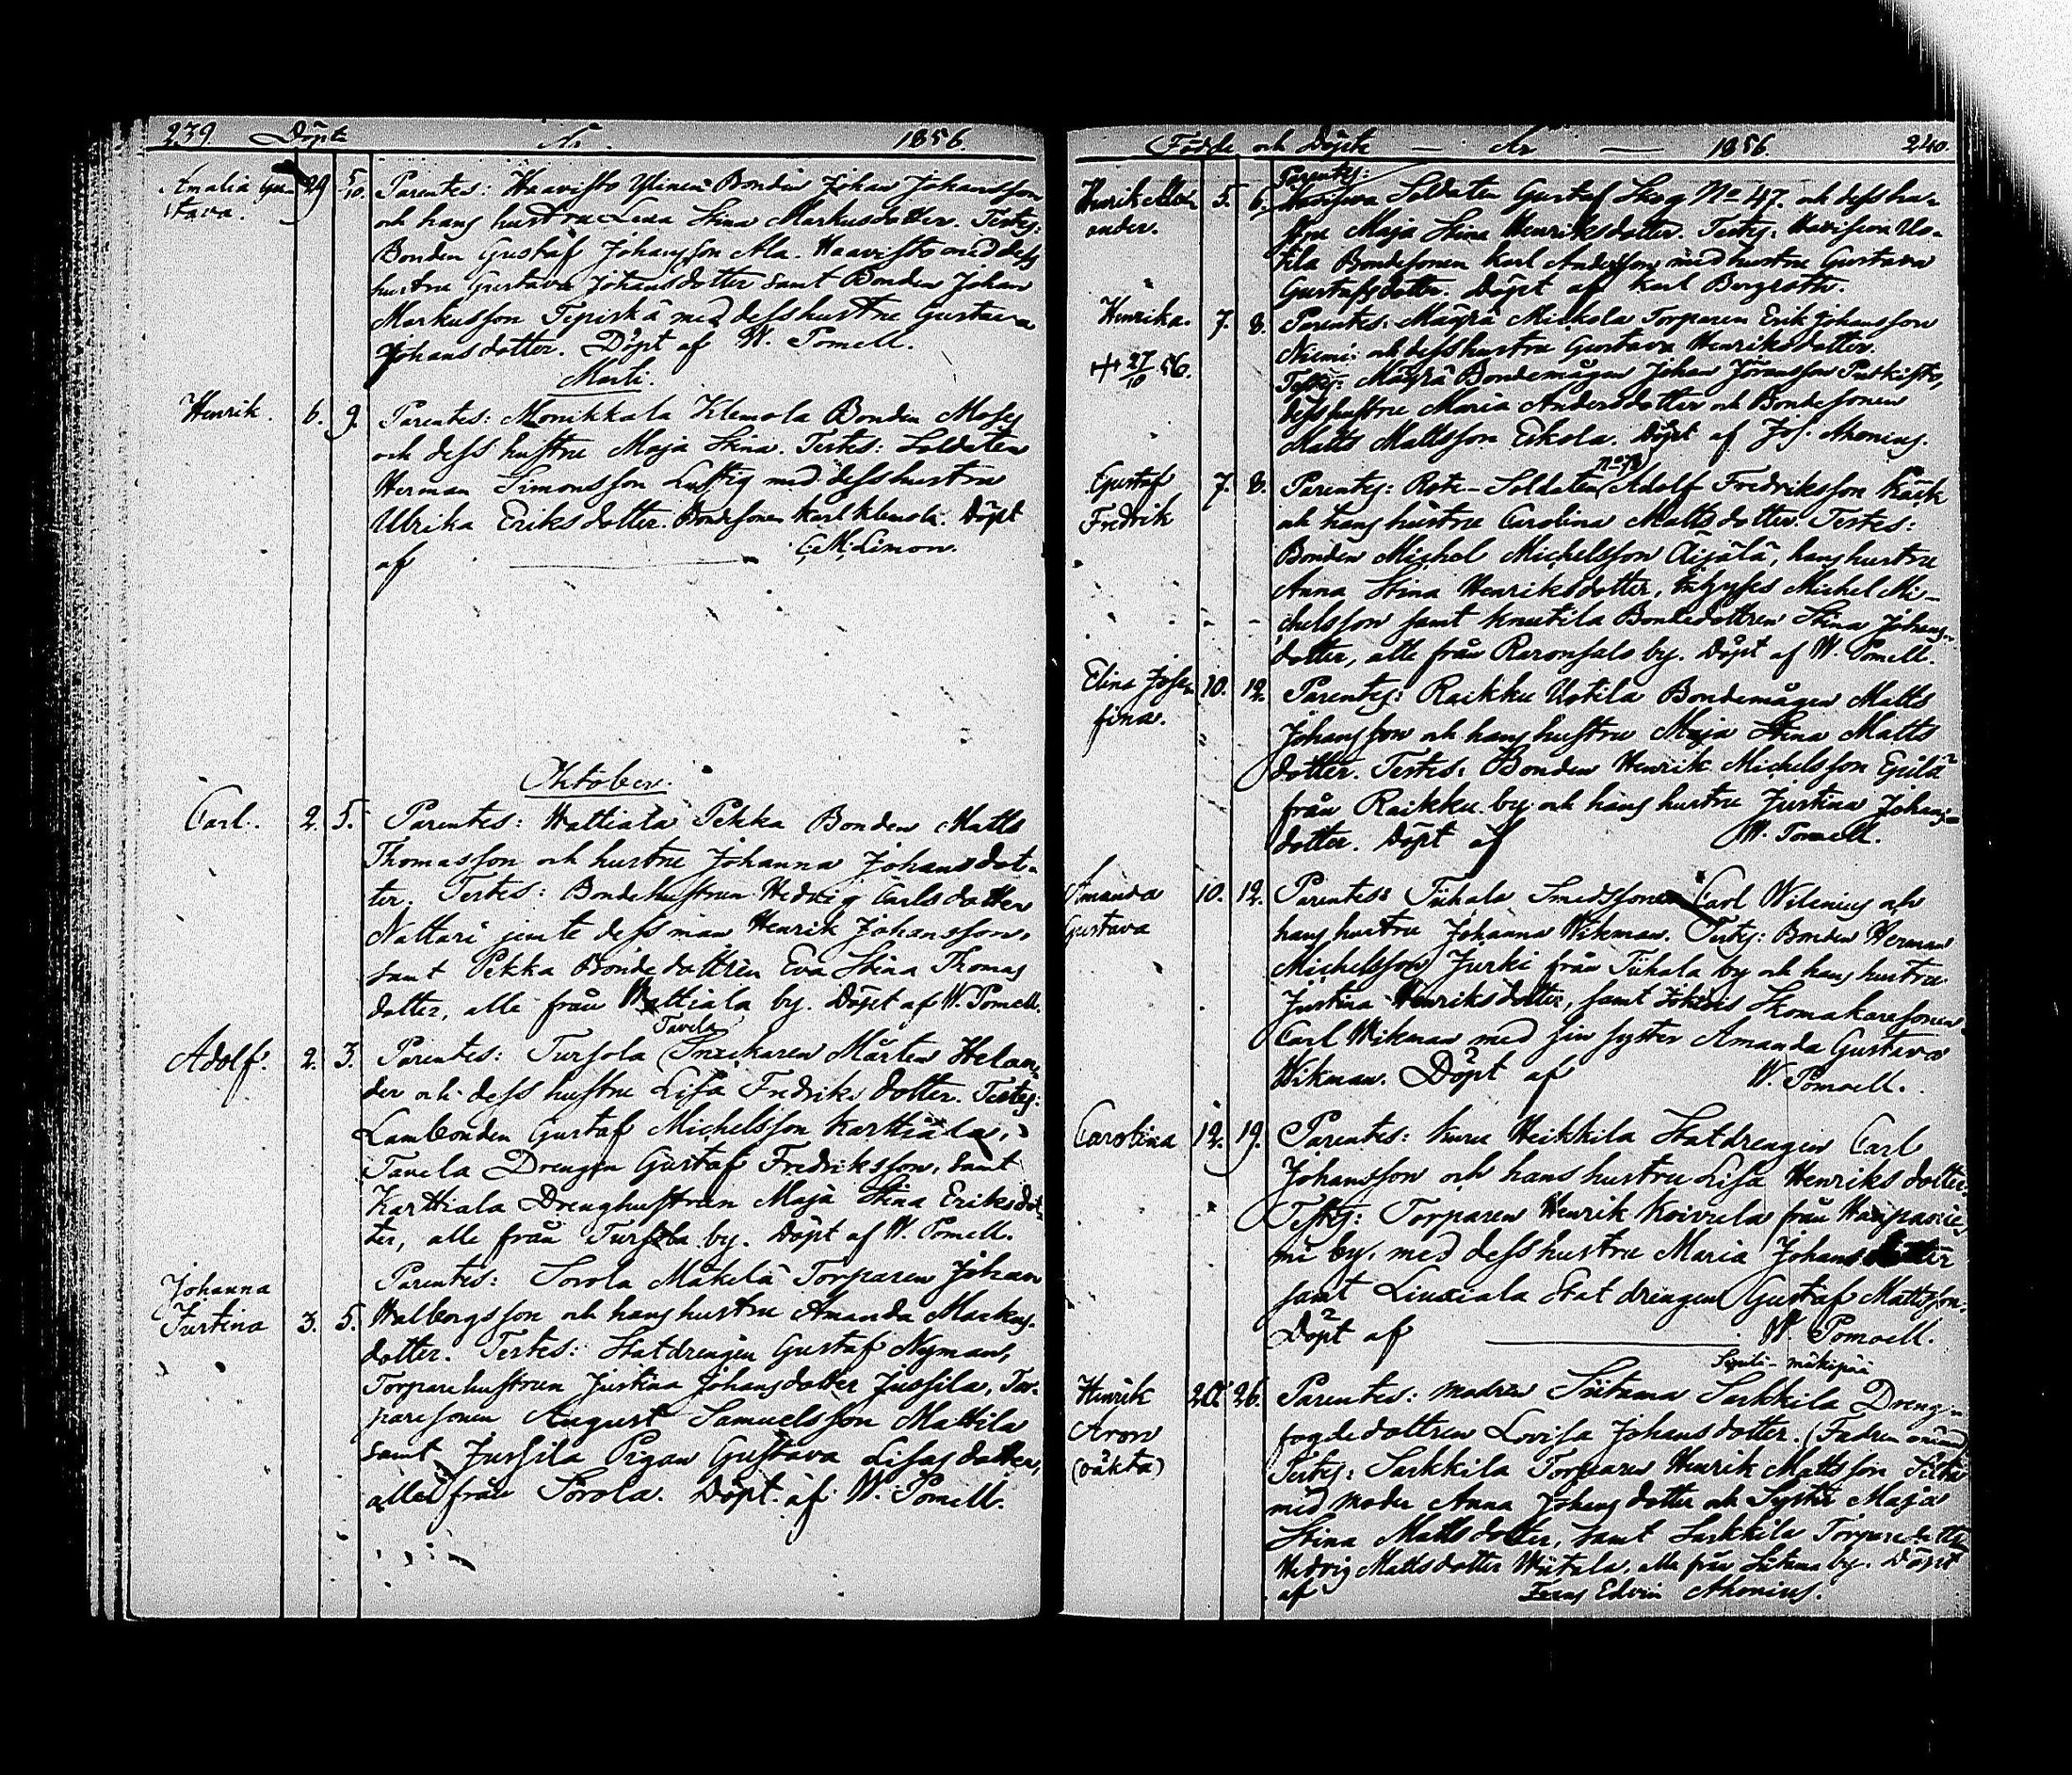 239 Döpte År 1856
Amalia Gu- 29 5/10. Parentes: Haavisto Ylinen Bonden Johan Johansson
stava. och hans hustru Lena Stina Markusdotter. Testes:
Bonden Gustaf Johansson Ala-Haavisto med dess
hustru Gustava Johansdotter samt Bonden Johan
Markusson Tepiskä med dess hustru Gustava
Johansdotter. Döpt af W. Pomell.
Marti.
Henrik. 6. 9. Parentes: Monikkala Klemola Bonden Moses
och dess hustru Maja Stina. Testes: Soldaten
Herman Simonsson Luftig med dess hustru
Ulrika Eriksdotter. Bondesonen Karl Klemola. Döpt
af C. M. Limon.
Oktober.
Carl. 2. 5. Parentes: Wattiala Pekka Bonden Matts
Thomasson och hustru Johanna Johansdot-
ter. Testes: Bondehustrun Hedvig Carlsdotter
Nattari jemte dess man Henrik Johansson,
samt Pekka Bondedottren Eva Stina Thomas
dotter, alle från Wattiala by. Döpt af W. Pomell.
Tavela
Adolf. 2. 3. Parentes: Tursola Snickaren Mårten Helan-
der och dess hustru Lisa Fredriksdotter. Testes:
Lambonden Gustaf Michelsson Karttiala,
Tavela Drengen Gustaf Fredriksson, samt
Karttiala Drenghustrun Maja Stina Eriksdot-
ter, alle från Tursola by. Döpt af W. Pomell.
Johanna Parentes: Sorola Mäkelä Torparen Johan
Justina 3. 5. Walbergsson och hans hustru Amanda Markus-
dotter. Testes: Statdrengen Gustaf Nyman,
Torparehustrun Justina Johansdotter Jussila, Tor-
paresonen August Samuelsson Mattila
samt Jussila Pigan Gustava Lisasdotter,
alle från Sorola. Döpt af W. Pomell.
Födde och Döpte — År — 1856. 240.
Parentes:
Henrik Alex- 5. 6. Soldaten Gustaf Skog No 47. och dess hu-
ander. stru Maja Stina Henriksdotter. Testes: Uo-
tila Bondesonen Karl Andersson med hustru Gustava
Gustafsdotter. Döpt af Karl Bergroth.
Henrika. 7. 8. Parentes: Mäyrä Mickola Torparen Erik Johansson
Niemi och dess hustru Gustava Henriksdotter.
+ 27/10 56. Testes: Mäyrä Bondemågen Johan Göransson
dess hustru Maria Andersdotter och Bondesonen
Matts Mattsson Eskola. Döpt af Jos. Ahonius.
No 78
Gustaf 7. 8. Parentes: Rote-Soldaten Adolf Fredriksson Käck
Fredrik och hans hustru Carolina Mattsdotter. Testes:
Bonden Michel Michelsson Äijälä, hans hustru
Anna Stina Henriksdotter, Inhyses Michel Mi-
chelsson samt Knutila Bondedottren Stina Johans-
dotter, alle från Raronsalo by. Döpt af W. Pomell.
Elina Jose- 10. 12. Parentes: Raikku Uotila Bondemågen Matts
fina. Johansson och hans hustru Maja Stina Matts
dotter. Testes: Bonden Henrik Michelsson Erilä
från Raikku by och hans hustru Justina Johans-
dotter. Döpt af W. Pomell.
Amanda 10. 12. Parentes: Tiihala Smedssonen Carl Wilenius och
Gustava hans hustru Johanna Wikman. Testes: Bonden Herman
Michelsson Jurki från Tiihala by och hans hustru
Justina Henriksdotter, samt Skomakaresonen
Carl Wikman med sin syster Amanda Gustava
Wikman. Döpt af W. Pomoell.
Carolina 12. 19. Parentes: Kuru Heikkila Statdrengen Carl
Johansson och hans hustru Lisa Henriksdotter.
Testes: Torparen Henrik Koivula från Haapanie-
mi by, med dess hustru Maria Johansdotter
samt Liuxiala Statdrengen Gustaf Mattsson.
Döpt af W. Pomoell.
Henrik 20. 26. Parentes: modren Siitama Sarkkila Dreng-
Aron fogdedottren Lovisa Johansdotter. (Fadren
(oäkta) Testes: Sarkkila Torparen Henrik Mattsson
med moder Anna Johansdotter och Syster Maja
Stina Mattsdotter, samt Sarkkila Torparedotter
Hedvig Mattsdotter alle från Siitama by. Döpt
af Edvin Ahonius.